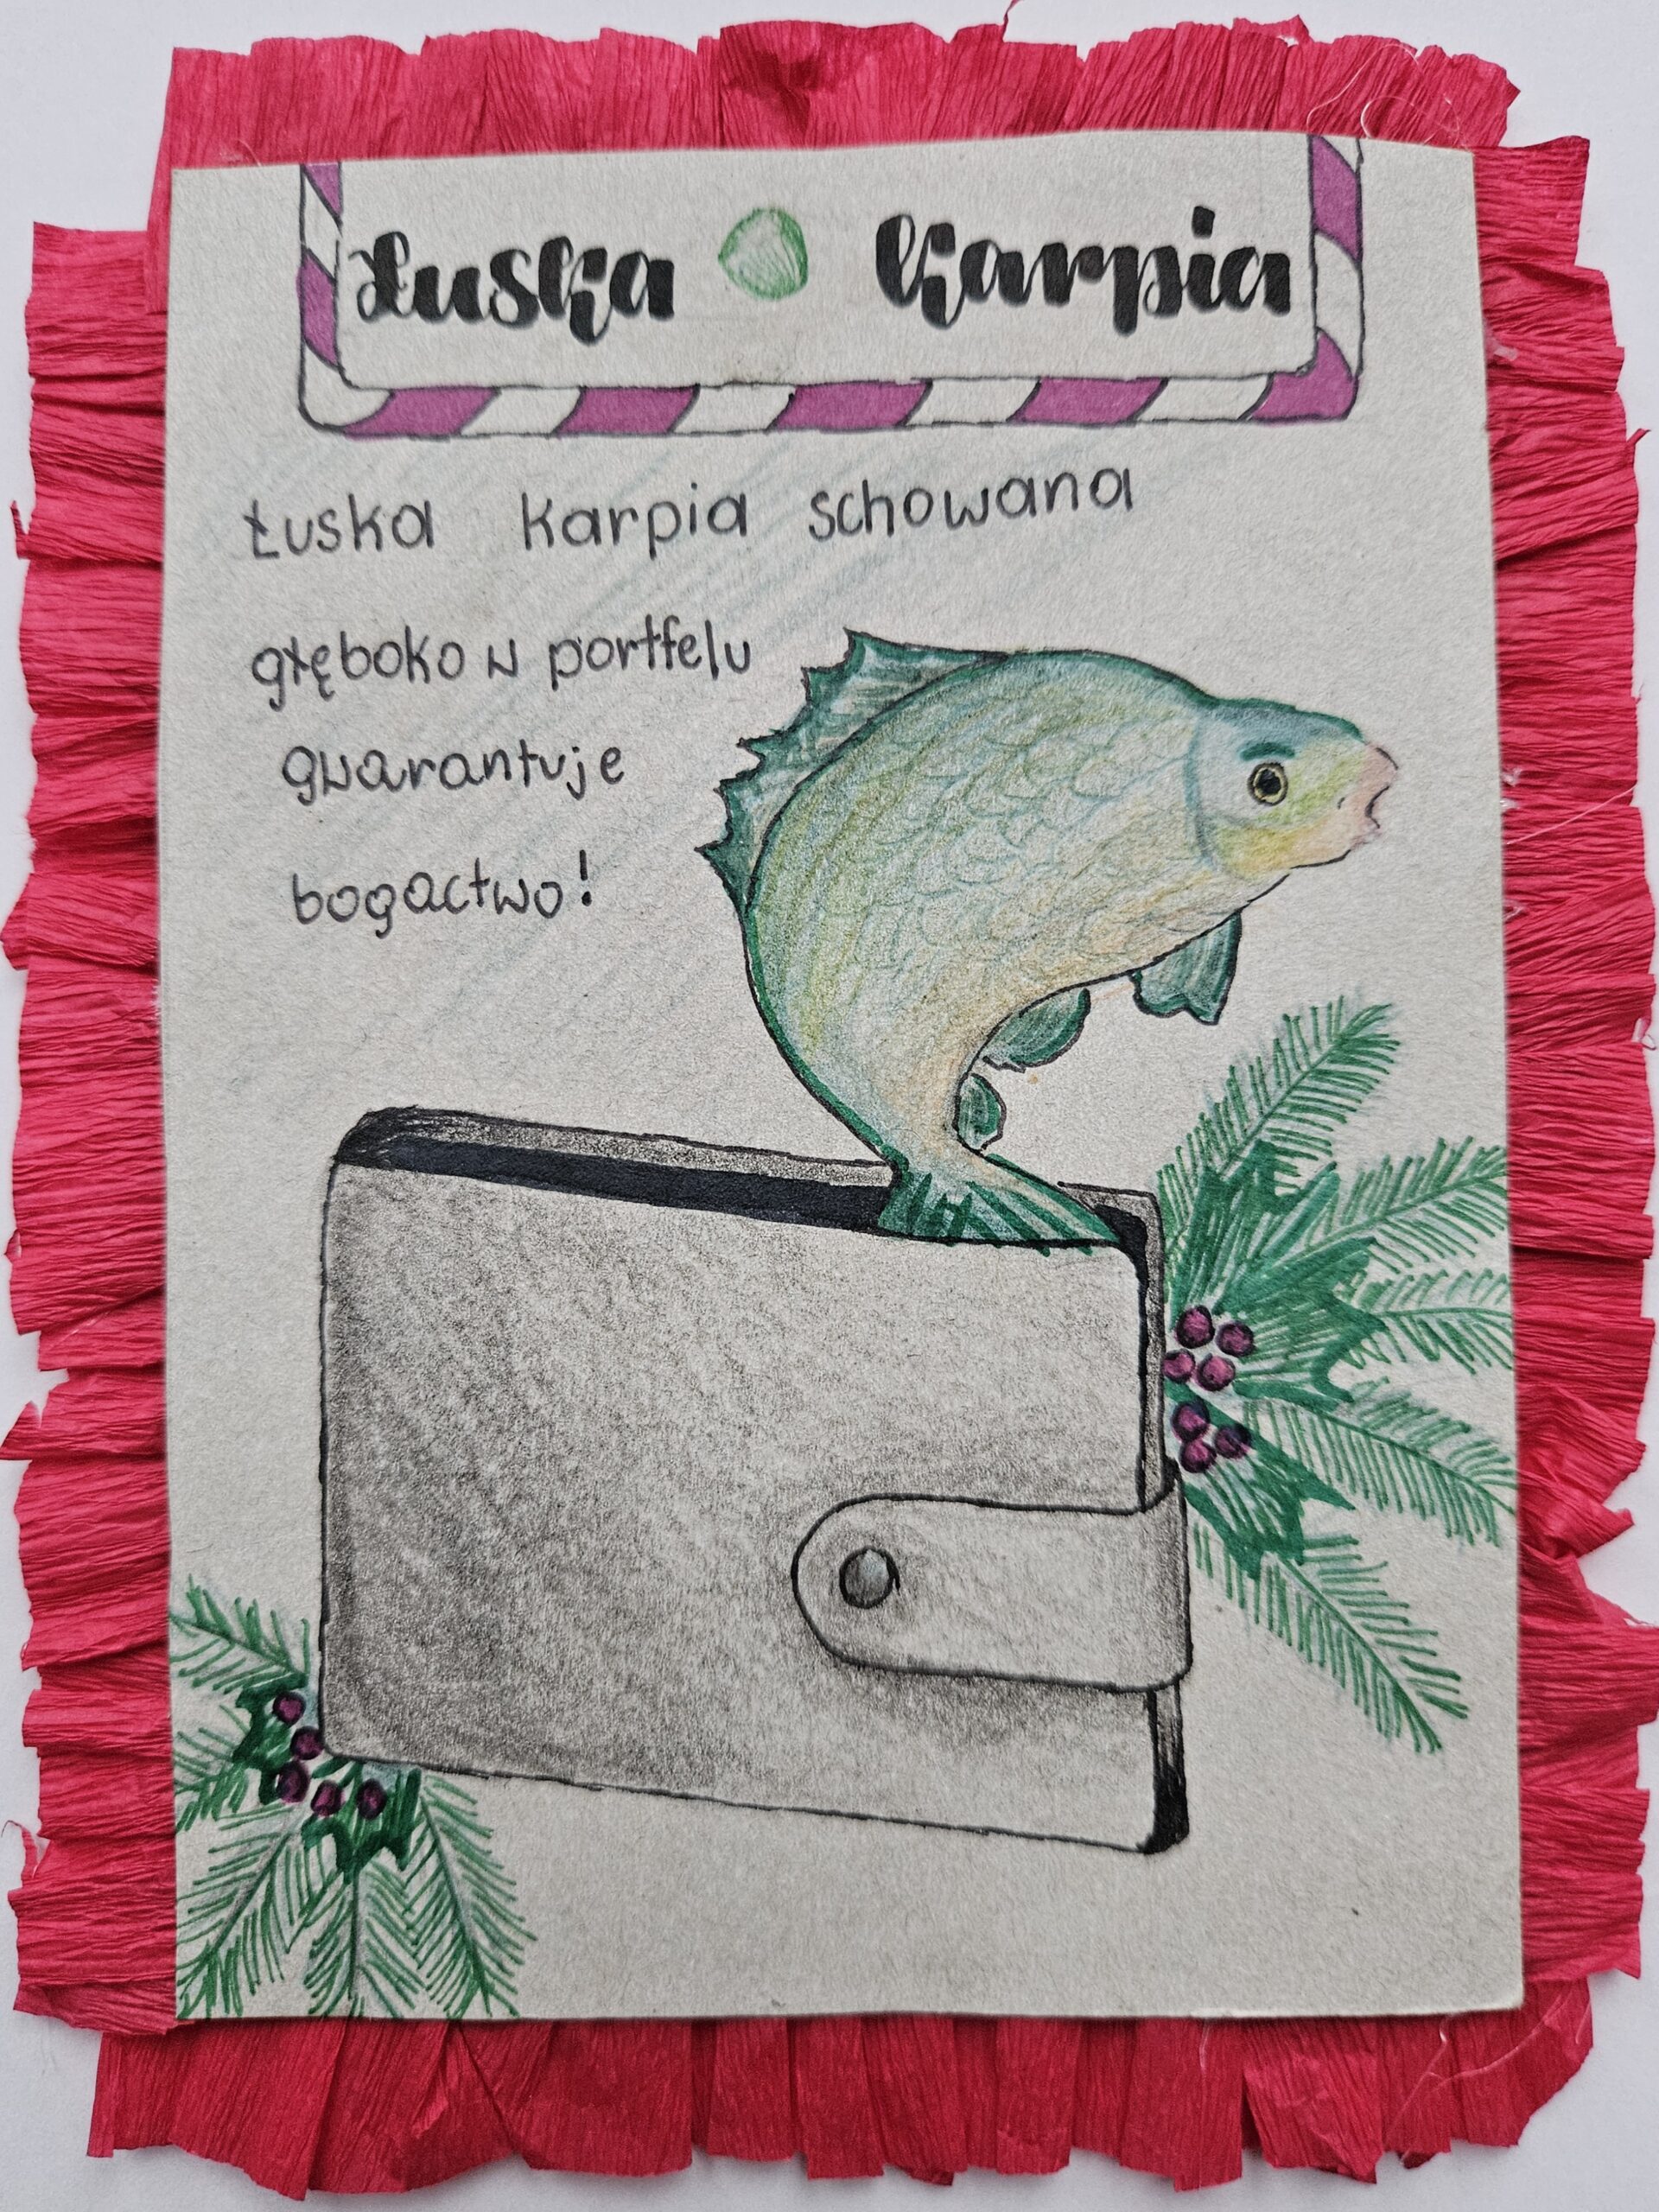 Łuska karpia
Łuska karpia schowana
głęboko w portfelu
gwarantuje
bogactwo!